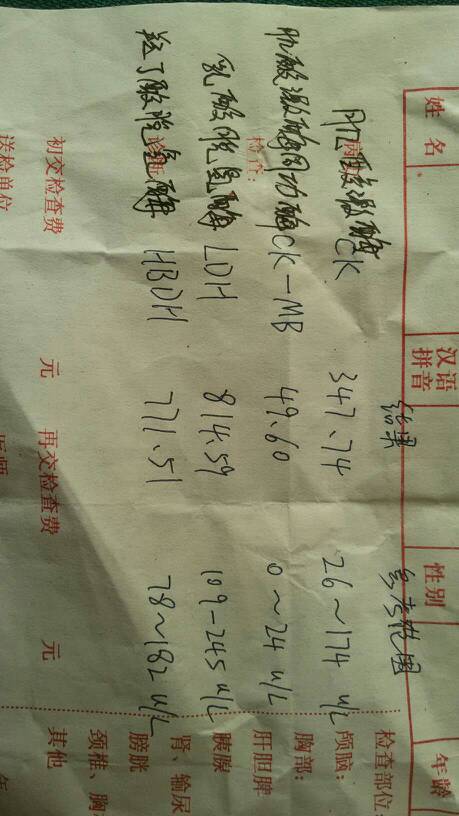 姓名 汉语拼音 性别 年龄
结果 参考范围
肌酸激酶 CK 347.74 26~174 u/L
肌酸激酶同功酶 CK-MB 49.60 0~24 u/L
检查:
乳酸脱氢酶 LDH 814.59 109-245 u/L
羟丁酸脱氢酶 HBDH 771.51 78~182 u/L
初交检查费 元 再交检查费 元
送检单位 医师 年
检查部位:
颅脑:
胸部:
肝胆脾
胰腺
肾、输尿
膀胱
颈椎、胸
其他